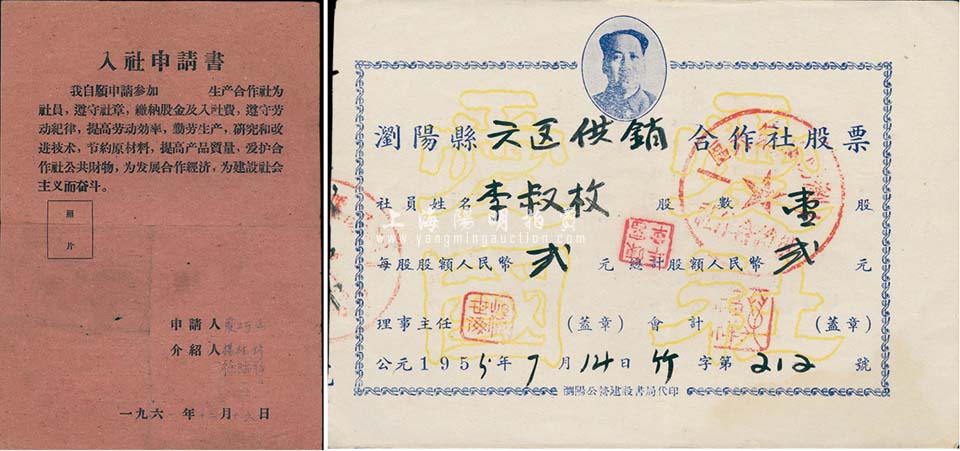 入社申請書
我自願申請参加 生产合作社为
社員，遵守社章，繳納股金及入社費，遵守劳
动紀律，提高劳动效率，勤劳生产，研究和改
进技术，节約原材料，提高产品質量，爱护合
作社公共財物，为发展合作經济，为建設社会
主义而奋斗。
照
片
申請人
介紹人
一九六 年 月 日
瀏陽縣 六区供銷 合作社股票
社員姓名 李叔枚 股數 壹 股
每股股額人民幣 弍 元 總計股額人民幣 弍 元
理事主任 (蓋章) 會計 (蓋章)
公元1955年7月14日 竹 字第 212 號
瀏陽公營建設書局代印
上海陽明拍賣
www.yangmingauction.com